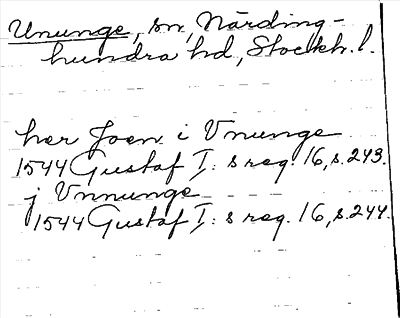 Ununge, sn, Närding-
hundra hd, Stockh. l.
her Joen i Vnunge
1544 Gustaf I: s reg. 16, s. 243.
j Vnnunge
1544 Gustaf I: s reg. 16, s. 244.